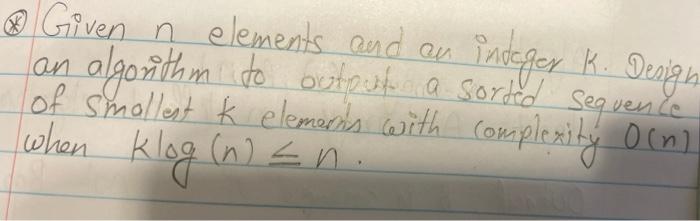 ⊛ Given n elements and an integer K. Design
an algorithm to output a sorted sequence
of smallest k elements with complexity O(n)
when klog(n) ≤ n.